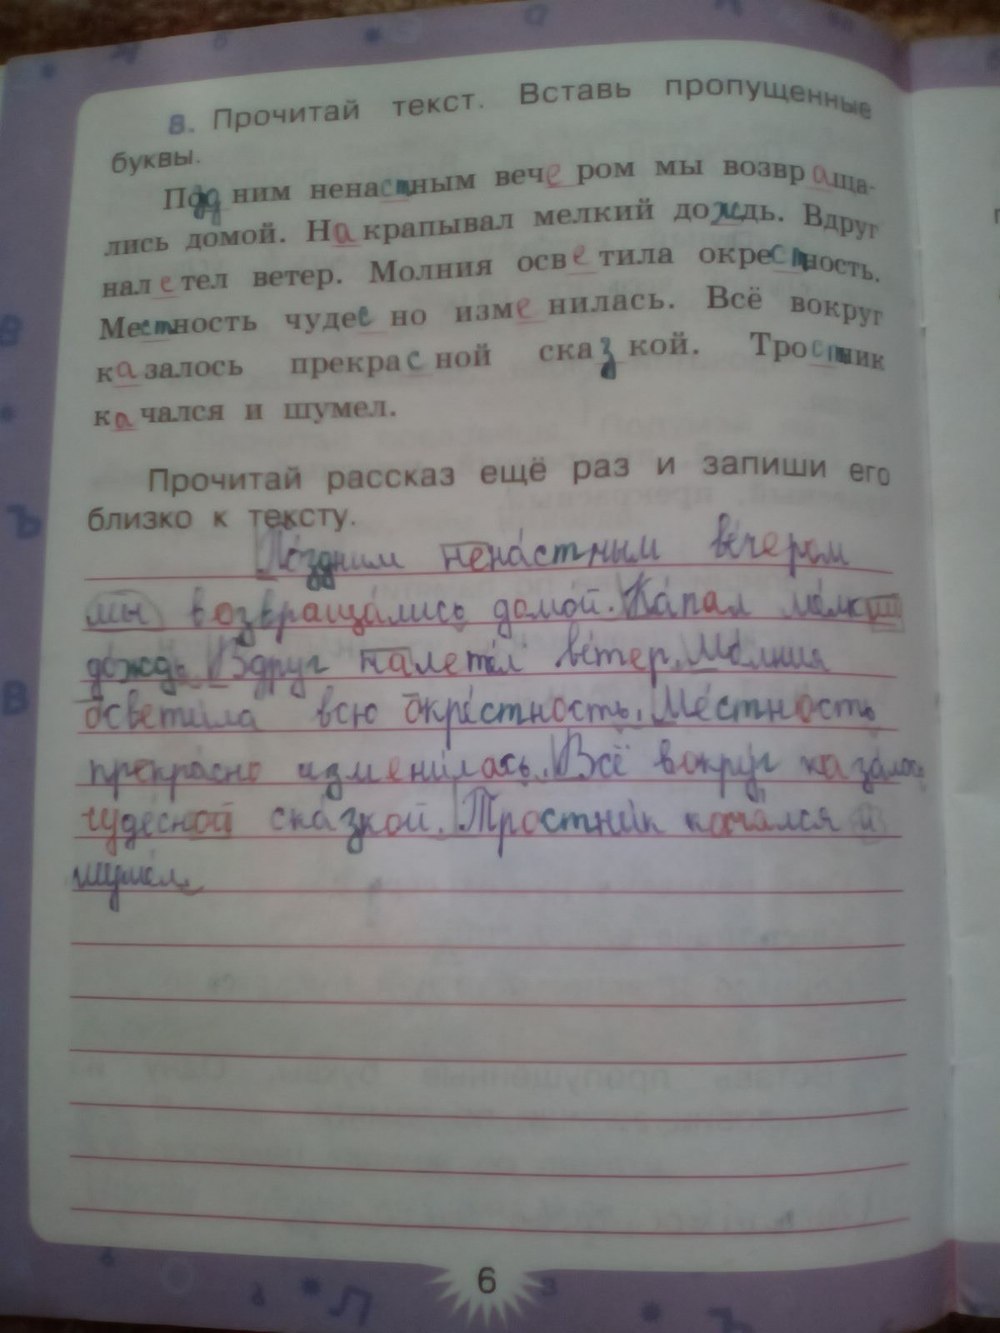 8. Прочитай текст. Вставь пропущенные
буквы.
Поздним ненастным вечером мы возвраща-
лись домой. Накрапывал мелкий дождь. Вдруг
налетел ветер. Молния осветила окрестность.
Местность чудесно изменилась. Всё вокруг
казалось прекрасной сказкой. Тростник
качался и шумел.
Прочитай рассказ ещё раз и запиши его
близко к тексту.
Поздним ненастным вечером
мы возвращались домой. Капал мелкий
дождь. Вдруг налетел ветер. Молния
осветила всю окрестность. Местность
прекрасно изменилась. Всё вокруг казалось
чудесной сказкой. Тростник качался и
шумел.
6